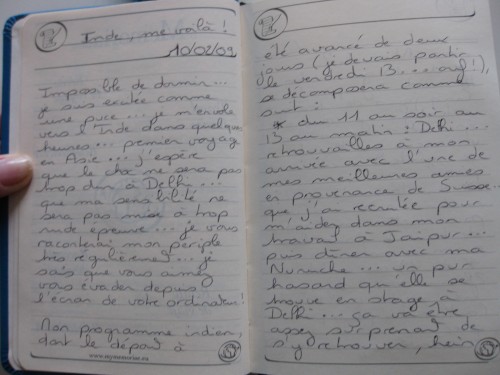 Inde, me voilà !
10/02/09
Impossible de dormir...
je suis excitée comme
une puce... je m'envole
vers l'Inde dans quelques
heures... premier voyage
en Asie... j'espère
que le choc ne sera pas
trop dur à Delhi...
que ma sensibilité ne
sera pas mise à trop
rude épreuve... je vous
raconterai mon périple
très régulièrement... je
sais que vous aimez
vous évader depuis
l'écran de votre ordinateur !
Mon programme indien,
dont le départ a
www.mymemories.eu
été avancé de deux
jours (je devais partir
le vendredi 13... ouf !),
se décomposera comme
suit :
* du 11 au soir au
13 au matin : Delhi...
retrouvailles à mon
arrivée avec l'une de
mes meilleures amies
en provenance de Suisse...
que j'ai recrutée pour
m'aider dans mon
travail à Jaipur...
puis dîner avec ma
... un pur
hasard qu'elle se
trouve en stage à
Delhi... ça va être
assez surprenant de
s'y retrouver, hein